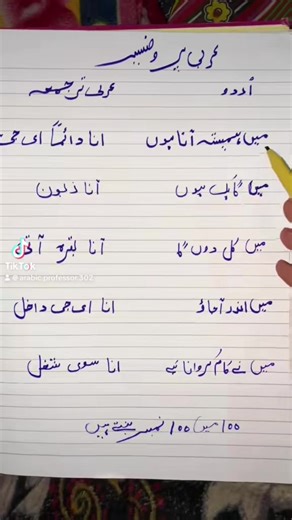 عربی پروفیسر
اُردو عربی ترجمہ
میں ہمیشہ آتا ہوں انا دائماً ای جی
میں گاہک ہوں انا زبون
میں کل دوں گا انا بکرہ
TikTok
@arabic.professor302
میں اندر آجاؤ انا ای جی داخل
میں نے کام کروانا ہے انا سوی شغل
100 میں 100 نمبر ہیں